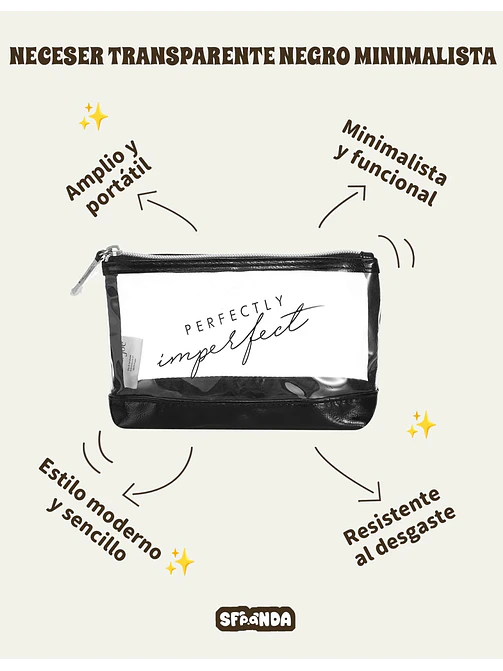 NECESER TRANSPARENTE NEGRO MINIMALISTA
Amplio y
portátil
Minimalista
y funcional
PERFECTLY
imperfect
Estilo moderno
y sencillo
Resistente
al desgaste
SFPANDA